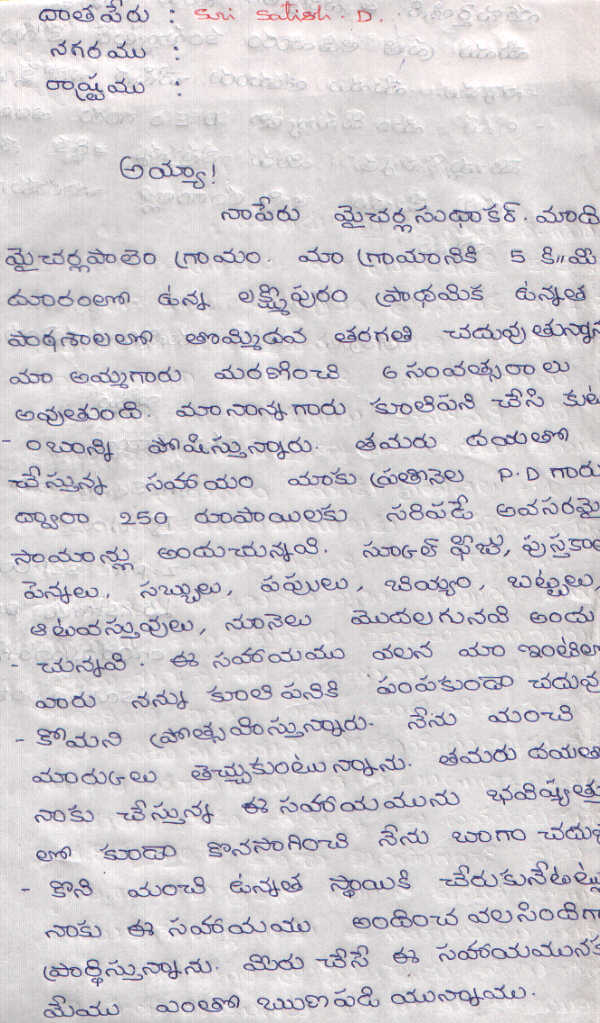 దాతపేరు : Sri Satish. D.
నగరము :
రాష్ట్రము :
అయ్యా!
నాపేరు మైచర్ల సుధాకర్. మాది
మైచర్లపాలెం గ్రామం. మా గ్రామానికి 5 కి||మి
దూరంలో ఉన్న లక్ష్మీపురం ప్రాథమిక ఉన్నత
పాఠశాలలో తొమ్మిదవ తరగతి చదువుతున్నాన
మా అమ్మగారు మరణించి 6 సంవత్సరాలు
అవుతుంది. మానాన్నగారు కూలిపని చేసి కుటు
- ంబాన్ని పోషిస్తున్నారు. తమరు దయతో
చేస్తున్న సహాయం మాకు ప్రతినెల P.D గారు
ద్వారా 250 రూపాయిలకు సరిపడే అవసరమై
సామాన్లు అందుచున్నవి. స్కూల్ ఫీజు, పుస్తకాల
పెన్నులు, సబ్బులు, పప్పులు, బియ్యం, బట్టలు,
ఆటవస్తువులు, నూనెలు మొదలగునవి అందు
- చున్నవి. ఈ సహాయము వలన మా ఇంటిలో
వారు నన్ను కూలి పనికి పంపకుండా చదువు
- కోమని ప్రోత్సహిస్తున్నారు. నేను మంచి
మార్కులు తెచ్చుకుంటున్నాను. తమరు దయతో
నాకు చేస్తున్న ఈ సహాయమును భవిష్యత్తు
లో కూడా కొనసాగించి నేను బాగా చదువు
- కొని మంచి ఉన్నత స్థాయికి చేరుకునేటట్లు
నాకు ఈ సహాయము అందించ వలసిందిగా
ప్రార్థిస్తున్నాను. మీరు చేసే ఈ సహాయమునక
మేము ఎంతో ఋణపడి యున్నాము.